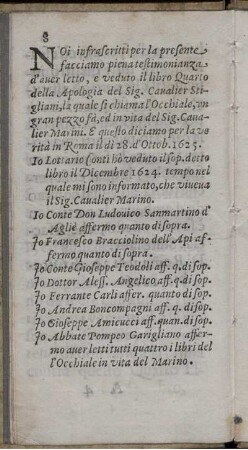 8
NOi infrascritti per la presente
facciamo piena testimonianza
d'auer letto, e veduto il libro Quarto
della Apologia del Sig. Caualier Sti-
gliani, la quale si chiama l'Occhiale, vn
gran pezzo fà, ed in vita del Sig. Caua-
lier Marini. E questo diciamo per la ve
rità in Roma il dì 28. d'Ottob. 1625.
Io Lottario Conti hò veduto il sop. detto
libro il Dicembre 1624. tempo nel
quale mi sono informato, che viueua
il Sig. Caualier Marino.
Io Conte Don Ludouico Sanmartino d'
Agliè affermo quanto di sopra.
Io Francesco Bracciolino dell'Api af-
fermo quanto di sopra.
Io Conte Gioseppe Teodoli aff. q. di sop.
Io Dottor Aless. Angelico aff. q. di sop.
Io Ferrante Carli affer. quanto di sop.
Io Andrea Boncompagni aff. q. di sop.
Io Gioseppe Amicucci aff. quan. di sop.
Io Abbate Pompeo Garigliano affer-
mo auer letti tutti quattro i libri del
l'Occhiale in vita del Marino.